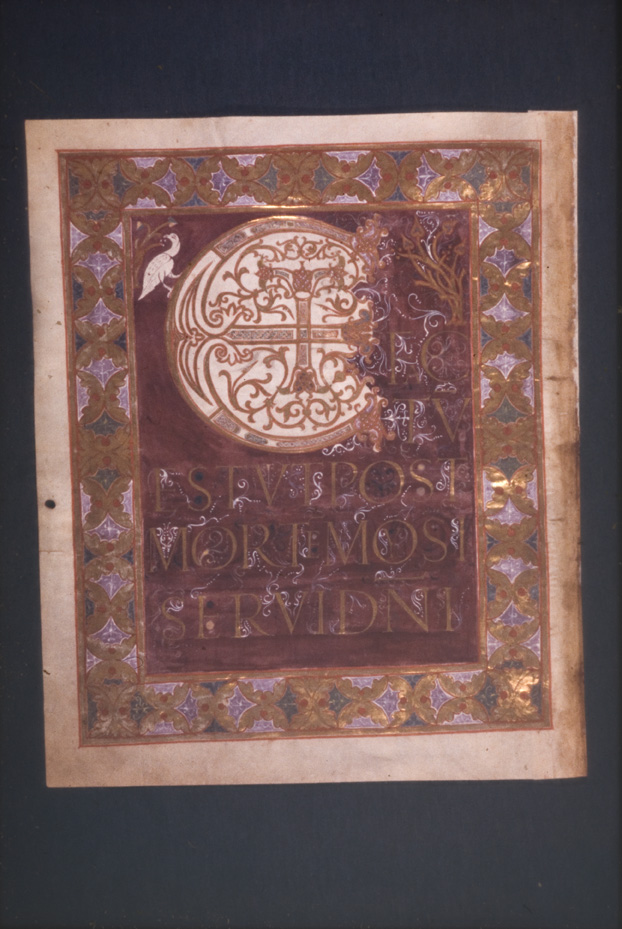 ET
FC
TV
EST VT POST
MORTE MOSI
SERVI DNI